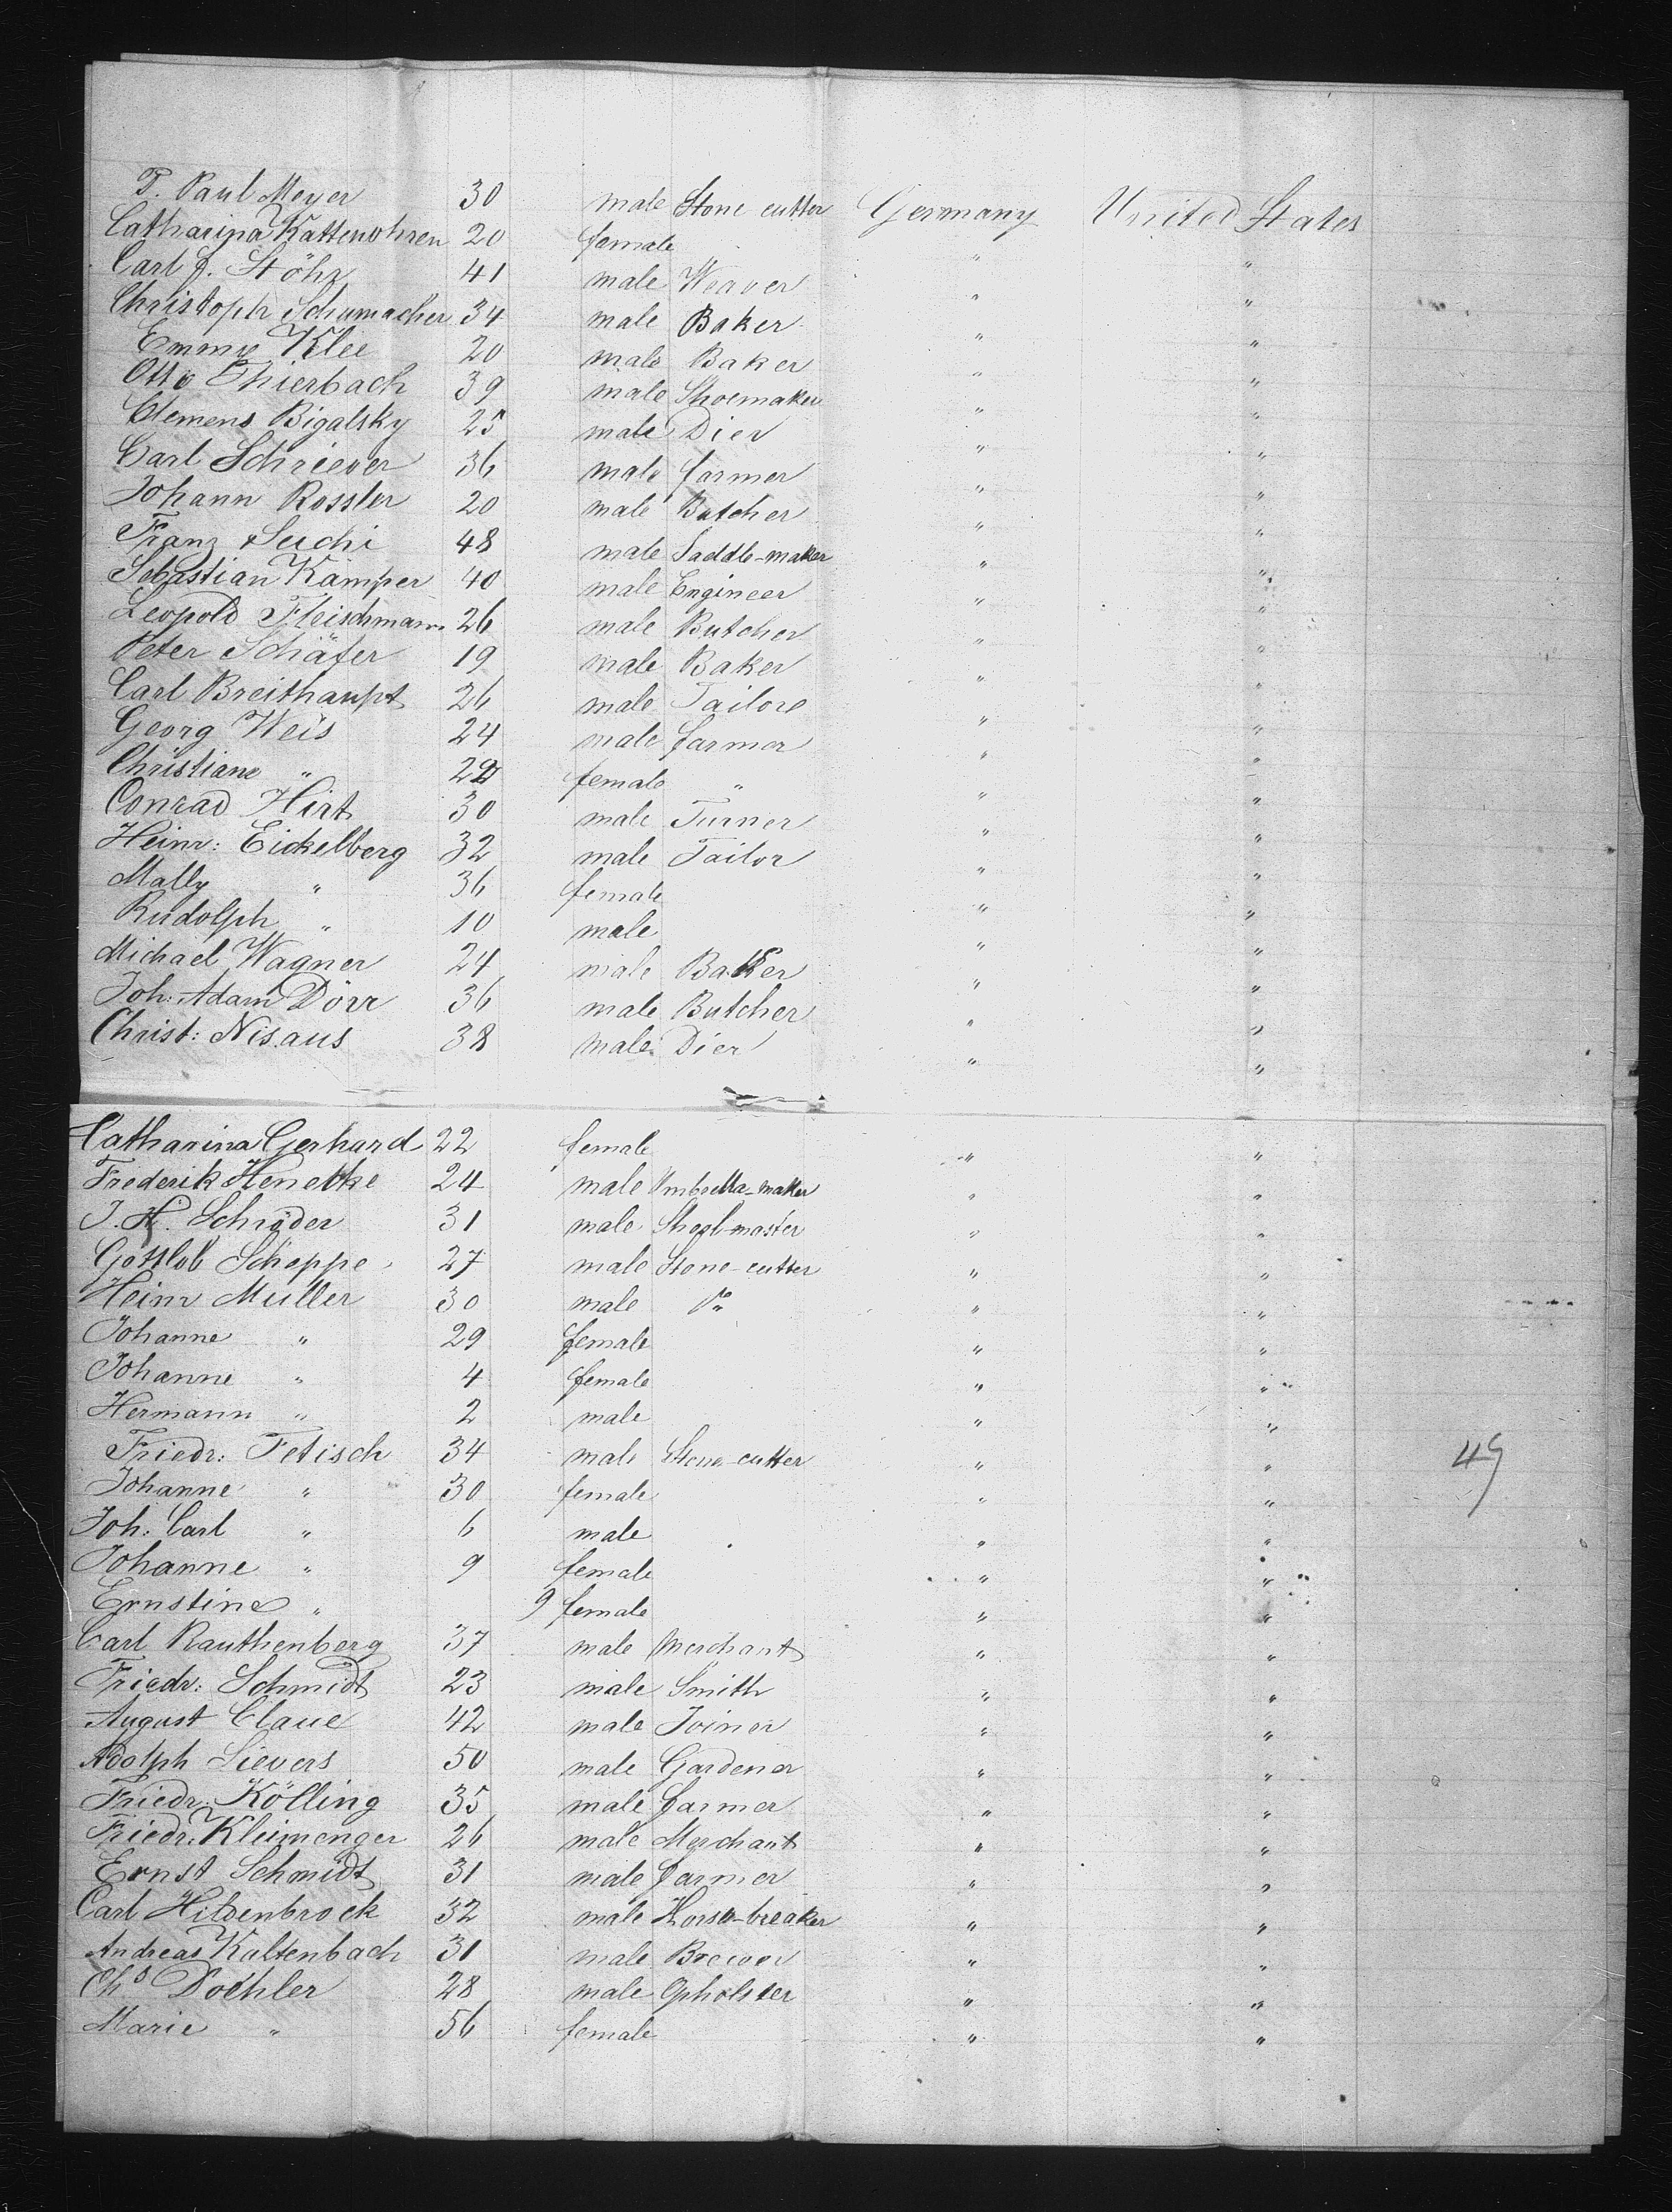 P. Paul Meyer 30 male Stone cutter Germany United States
Catharina Kattenohren 20 female " "
Carl J. Stöhr 41 male Weaver " "
Christoph Schumacher 34 male Baker " "
Emmy Klee 20 male Baker " "
Otto Thierbach 39 male Shoemaker " "
Clemens Bigalsky 25 male Dier " "
Carl Schriever 36 male farmer " "
Johann Rossler 20 male Butcher " "
Franz Seichi 48 male Saddle-maker " "
Sebastian Kämper 40 male Engineer " "
Leopold Fleischmann 26 male Butcher " "
Peter Schäfer 19 male Baker " "
Carl Breithaupt 26 male Tailore " "
Georg Weis 24 male farmer " "
Christiane " 22 female " " "
Conrad Hirt 30 male Turner " "
Heinr: Eickelberg 32 male Tailor " "
Mally " 36 female " "
Rudolph " 10 male " "
Michael Wagner 24 male Baker " "
Joh: Adam Dörr 36 male Butcher " "
Christ: Nisaus 38 male Dier " "
Catharina Gerhard 22 female " "
Frederik Henetke 24 male Umbrella-maker " "
J. H. Schröder 31 male Shool-master " "
Gottlob Scheppe 27 male Stone-cutter " "
Heinr Muller 30 male do " "
Johanne " 29 female " "
Johanne " 4 female " "
Hermann " 2 male " "
Friedr: Fetisch 34 male Stone-cutter " " 49
Johanne " 30 female " "
Joh: Carl " 6 male " "
Johanne " 9 female " "
Ernstine " 9 female " "
Carl Rauthenberg 37 male Merchant " "
Friedr: Schmidt 23 male Smith " "
August Claue 42 male Joiner " "
Adolph Sievers 50 male Gardener " "
Friedr: Kölling 35 male farmer " "
Friedr: Kleimenger 26 male Merchant " "
Ernst Schmidt 31 male farmer " "
Carl Hildenbrock 32 male Horse-breaker " "
Andreas Kaltenbach 31 male Brewer " "
Chs Doehler 28 male Opholster " "
Marie " 56 female " "